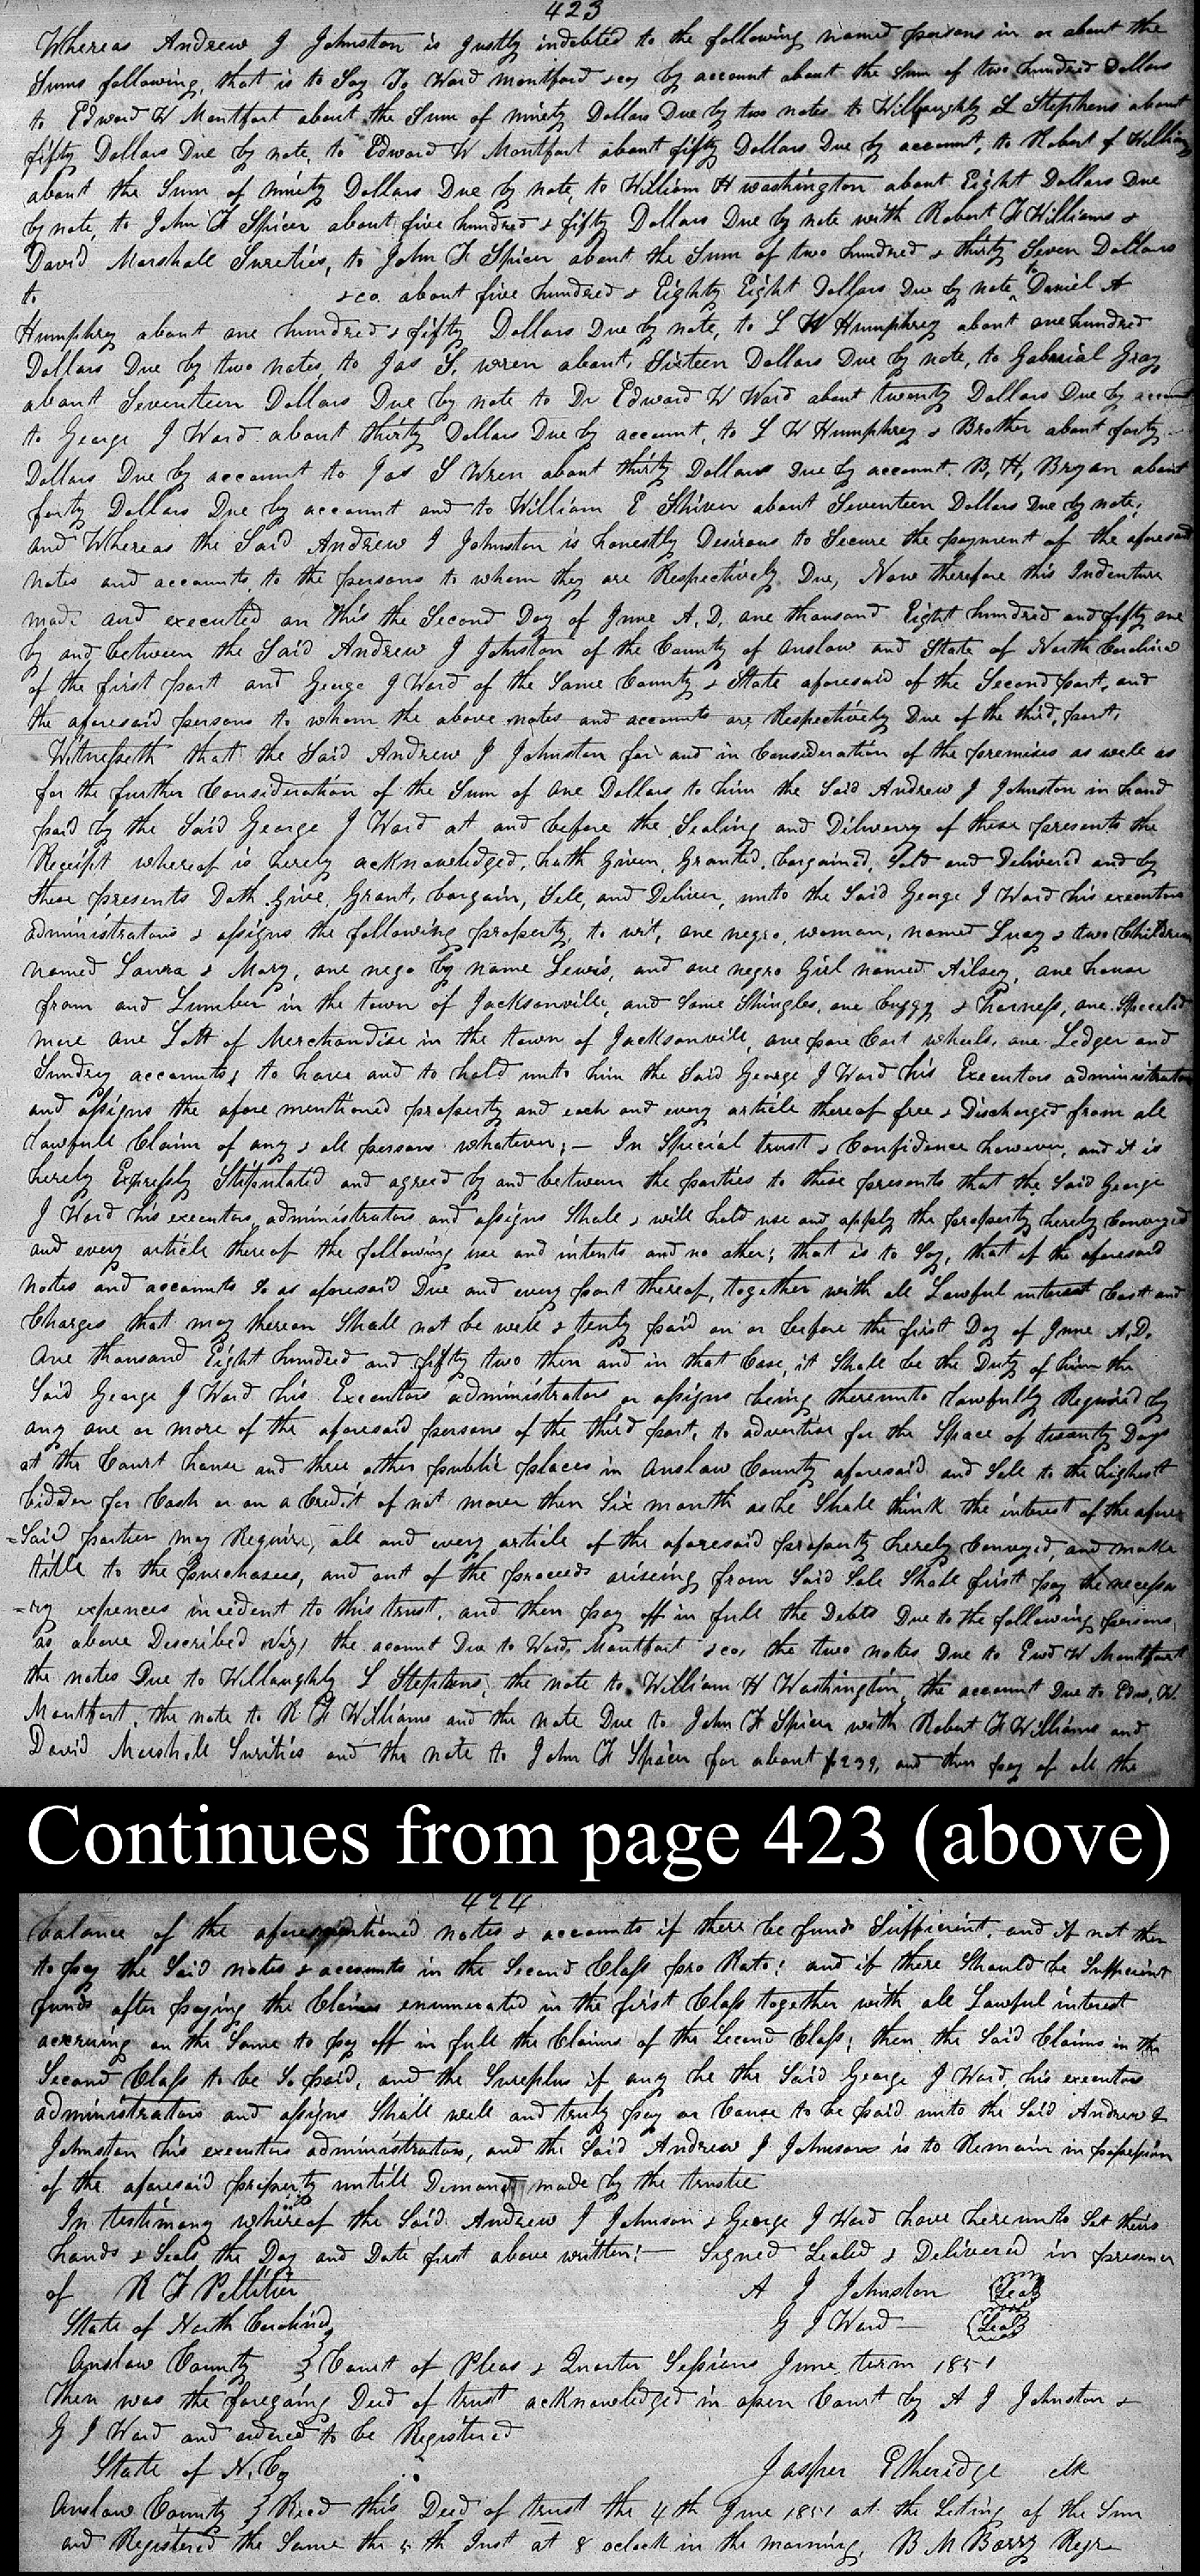 423
Whereas Andrew J Johnston is Justly indebted to the following named persons in or about the
Sums following, that is to Say To Ward montford &co, by account about the Sum of two hundred Dollars
to Edward W Montfort about the Sum of ninety Dollars Due by two notes to Willoughby L Stephens about
fifty Dollars Due by note, to Edward W Montfort about fifty Dollars Due by account, to Robert F Williams
about the Sum of ninety Dollars Due by note, to William H washington about Eight Dollars Due
by note, to John F Spicer about five hundred & fifty Dollars Due by note with Robert F Williams &
David Marshall Sureties, to John F Spicer about the Sum of two hundred & thirty Seven Dollars
to &co about five hundred & Eighty Eight Dollars Due by note, to Daniel A
Humphrey about one hundred & fifty Dollars Due by note, to L W Humphrey about one hundred
Dollars Due by two notes, to Jas S. wren about Sixteen Dollars Due by note, to Gabrial Gray
about Seventeen Dollars Due by note to Dr Edward W Ward about twenty Dollars Due by account
to George J Ward about thirty Dollars Due by account, to L W Humphrey & Brother about forty
Dollars Due by account to Jas S Wren about thirty Dollars Due by account. B, H, Bryan about
forty Dollars Due by account and to William E Shiver about Seventeen Dollars Due by note;
and Whereas the Said Andrew J Johnston is honestly Desirous to Secure the payment of the aforesaid
notes and accounts, to the persons to whom they are Respectively Due, Now therefore this Indenture
made and executed on this the Second Day of June A, D, one thousand Eight hundred and fifty one
by and between the Said Andrew J Johnston of the County of Onslow and State of North Carolina
of the first part and George J Ward of the Same County & State aforesaid of the Second part, and
the aforesaid persons to whom the above notes and accounts are Respectively Due of the third, part,
Witnesseth that the Said Andrew J Johnston for and in Consideration of the premises as well as
for the further Consideration of the Sum of One Dollars to him the Said Andrew J Johnston in hand
paid by the Said George J Ward at and before the Sealing and Dilivery of these presents the
Receipt whereof is hereby acknowledged, hath Given, Granted, bargained, Sold and Delivered and by
these presents Doth Give, Grant, bargain, Sell, and Deliver, unto the Said George J Ward his executors
administrators & assigns the following property, to wit, one negro, woman, named Lucy & two Children
named Laura & Mary, one nego by name Lewis, and one negro Girl named Ailsey, one house
fram and Lumber in the town of Jacksonville, and Some Shingles, one buggy & harness, one Speceled
mare one Lott of Merchandise in the town of Jacksonville, one pare Cart wheels, one Ledger and
Sundrey accounts, to have and to hold unto him the Said George J Ward his Executors administrators
and assigns the afore mentioned property and each and every article thereof free & Discharged from all
lawfull Claim of any & all persons whatever; — In Special trust & Confidence however, and it is
hereby Expressly Stipulated and agreed by and between the parties to these presents that the Said George
J Ward his executors, administrators and assigns Shall & will hold use and apply the property hereby Conveyed
and every article thereof the following use and intents and no other; that is to Say, that if the aforesaid
notes and accounts So as aforesaid Due and every part thereof, together with all Lawful interest Cost and
Charges that may thereon Shall not be well & truly paid on or before the first Day of June A.D.
One thousand Eight hundred and fifty two then and in that Case, it Shall be the Duty of him the
Said George J Ward his Executors administrators or assigns being thereunto lawfully Required by
any one or more of the aforesaid persons of the third part, to advertise for the Space of twenty Days
at the Court house and three other public places in Onslow County aforesaid and Sell to the highest
bidder for Cash or on a Credit of not more then Six month as he Shall think the interest of the afore
=Said parties may Require, all and every article of the aforesaid property hereby Conveyed, and make
title to the purchasers, and out of the proceeds arising from Said Sale Shall first pay the necessa
=ry expences incedent to this trust, and then pay off in full the Debts Due to the following persons,
as above Described Viz, the acount Due to Ward, Montfort &co, the two notes Due to Ewd W Montfort
the notes Due to Willoughby L Stephens, the note to William H Washington, the account Due to Edw, W.
Montfort, the note to R F Williams and the note Due to John F Spicer with Robert F Williams and
David Marshall Surities and the note to John F Spicer for about $239, and then pay of all the
Continues from page 423 (above)
424
balance of the aforementioned notes & accounts if there be funds Sufficient, and if not then
to pay the Said notes & accounts in the Second Class pro Rato; and if there Should be Sufficient
funds after paying the Claims enumerated in the first Class together with all Lawful interest
accruing on the Same to pay off in full the Claims of the Second Class; then the Said Claims in the
Second Class to be So paid, and the Sureplus if any he the Said George J Ward, his executors
administrators and assigns Shall well and truly pay or Cause to be paid unto the Said Andrew J
Johnston his executors administrators, and the Said Andrew J Johnson is to Remain in possession
of the aforesaid property untill Demand made by the trustee
In testimony whereof the Said Andrew J Johnson & George J Ward have hereunto Set theirs
hands & Seals the Day and Date first above written;— Signed Sealed & Delivered in presence
of R F Pellitier A J Johnston (Seal)
State of North Carolina G J Ward — (Seal)
Onslow County } Court of Pleas & Quarter Sessions June term 1851
Then was the foregoing Deed of trust acknowledged in open Court by A J Johnston &
G J Ward and ordered to be Registered
State of N. Co Jasper Etheridge clk
Onslow County } Recd this Deed of trust the 4th June 1851 at the Seting of the Sun
and Registered the Same the 5th Inst at 8 oclock in the morning, B M Barry Regr